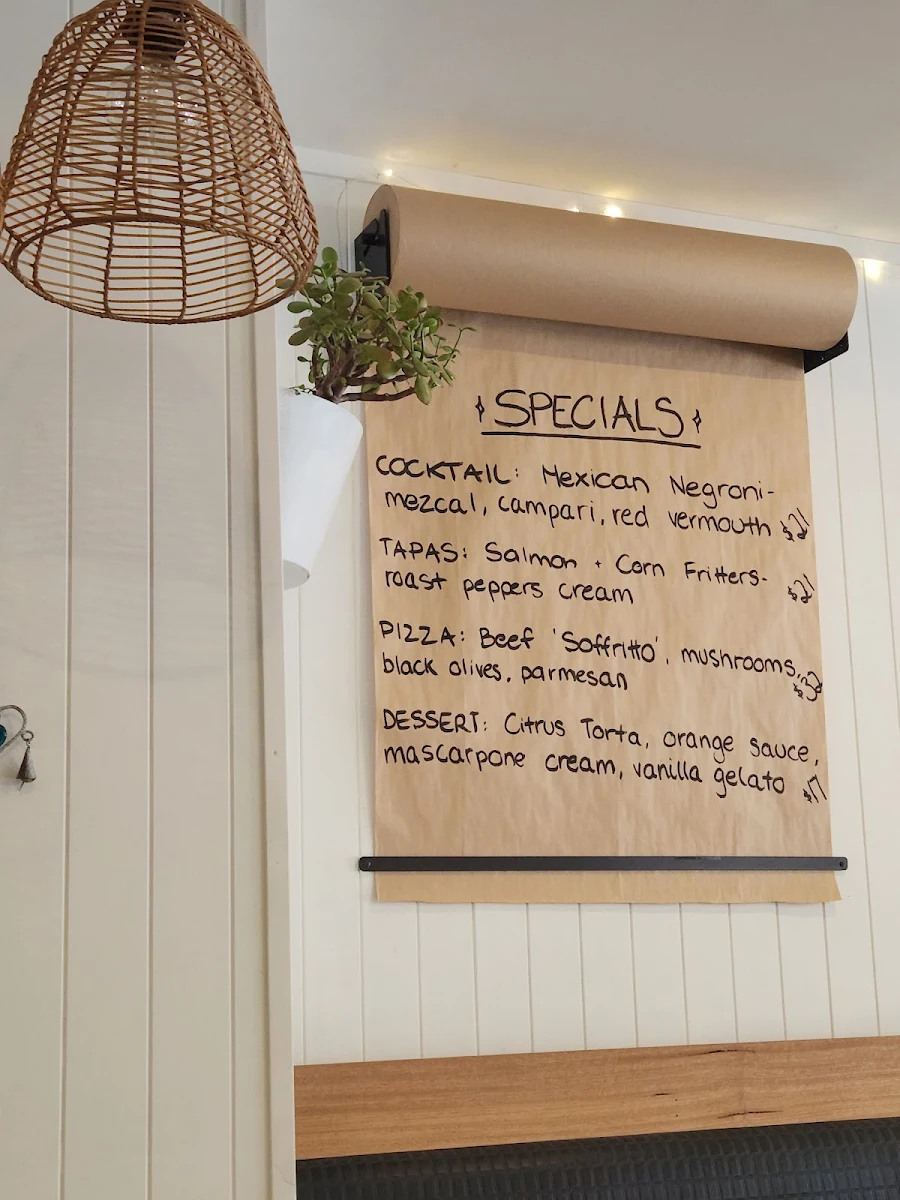 SPECIALS
COCKTAIL: Mexican Negroni-
mezcal, campari, red vermouth $21
TAPAS: Salmon + Corn Fritters-
roast peppers cream $21
PIZZA: Beef 'Soffritto', mushrooms,
black olives, parmesan $32
DESSERT: Citrus Torta, orange sauce,
mascarpone cream, vanilla gelato $17